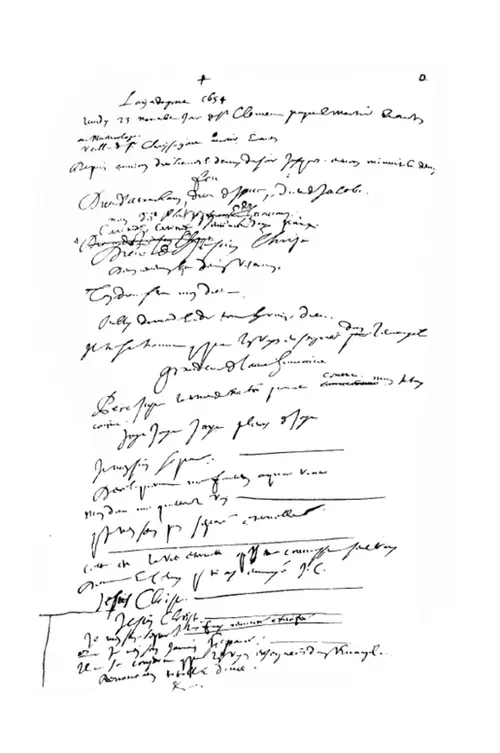 +
L'an de grace 1654
Lundy 23 novembre jour de St Clement pape et martir et autres
au Martirologe
veille de St Chrysogone martir et autres
Depuis environ dix heures et demy du soir jusques environ minuit et demy
feu
Dieu d'Abraham, Dieu d'Isaac, Dieu de Jacob.
non des philosophes et savans.
Certitude, certitude, sentiment joye paix
Dieu de Jesus Christ
Deum meum et Deum vestrum.
Ton Dieu sera mon Dieu.
Oubly du monde et de tout hormis Dieu.
Il ne se trouve que par les voyes enseignées dans l'Evangile
Grandeur de l'ame humaine
Pere juste le monde ne t'a point connu mais je t'ay
connu.
Joye Joye Joye pleurs de joye
Je m'en suis separé.
Dereliquerunt me fontem aquae vivae
mon Dieu me quitterez vous
que je n'en sois pas separé eternellement.
cette est la vie eternelle qu'ils te connoissent seul vray
Dieu et celuy que tu as envoyé J.C.
Jesus Christ.
Jesus Christ
Je m'en suis separé je l'ay fuy renoncé crucifié
que je n'en sois jamais separé.
il ne se conserve que par les voyes enseignées dans l'Evangile.
Renonciation totale et douce.